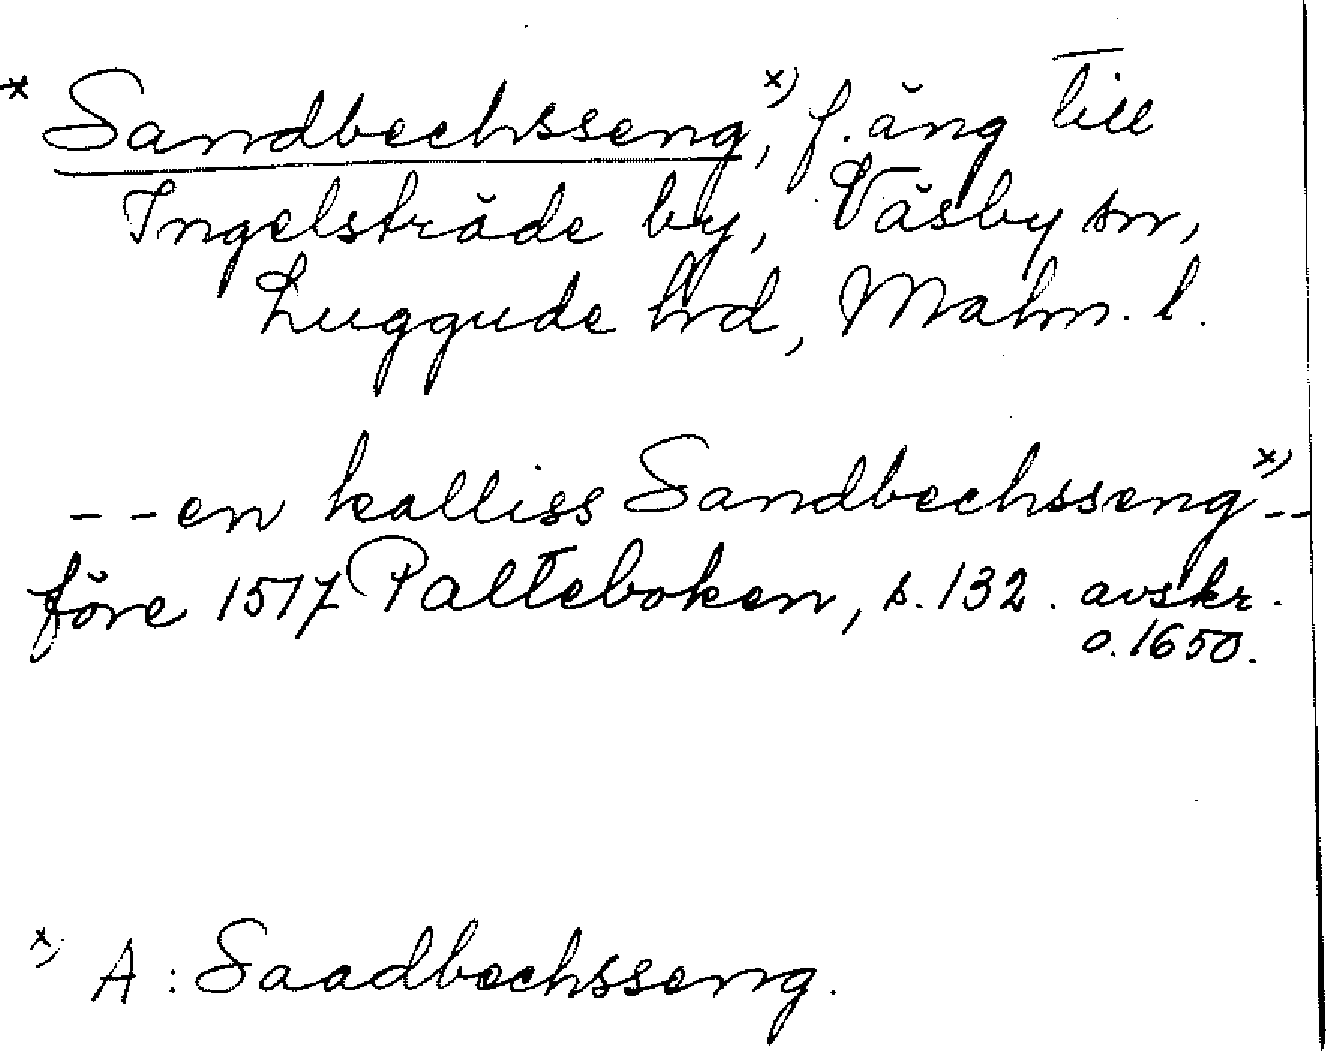 * Sandbechsseng,ˣ⁾ f. äng till
Ingelsträde by, Väsby sn,
Luggude hrd, Malm. l.
-- en kalliss Sandbechssengˣ⁾ --
före 1517 Palteboken, s. 132. avskr.
o. 1650.
ˣ⁾ A: Saadbechsseng.